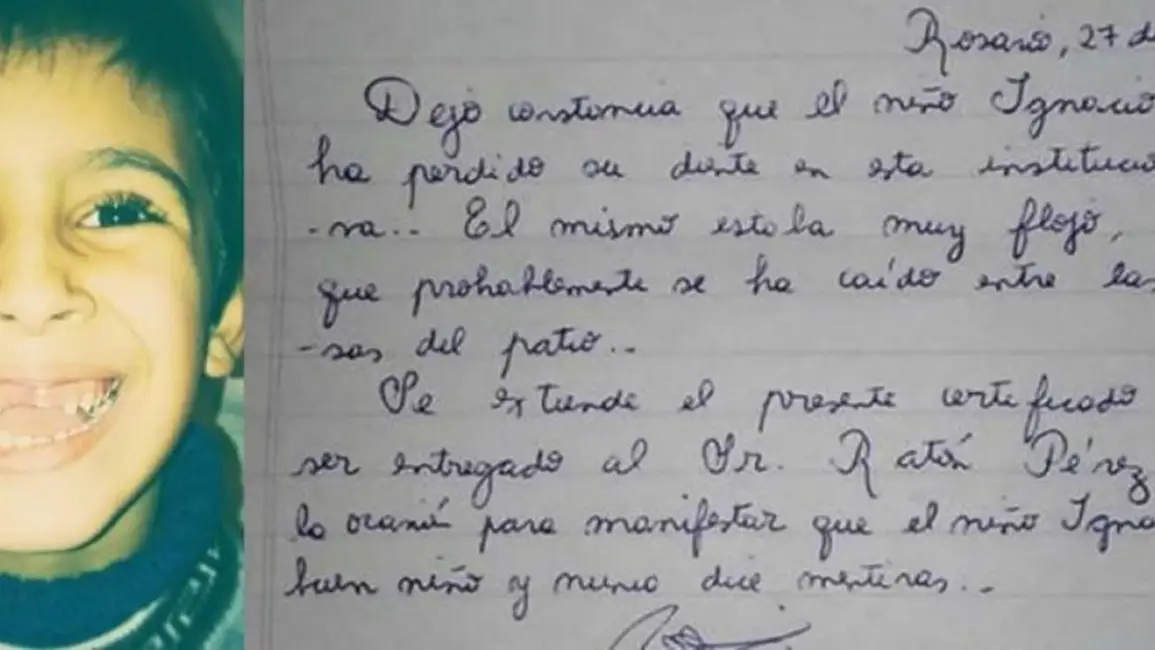 Rosario, 27 de
Dejo constancia que el niño Ignacio
ha perdido su diente en esta institució
-ra.. El mismo estaba muy flojo,
que probablemente se ha caído entre las
-sas del patio..
Se extiende el presente certificado
ser entregado al Sr. Ratón Pérez
la ocasión para manifestar que el niño Igna
buen niño y nunca dice mentiras..